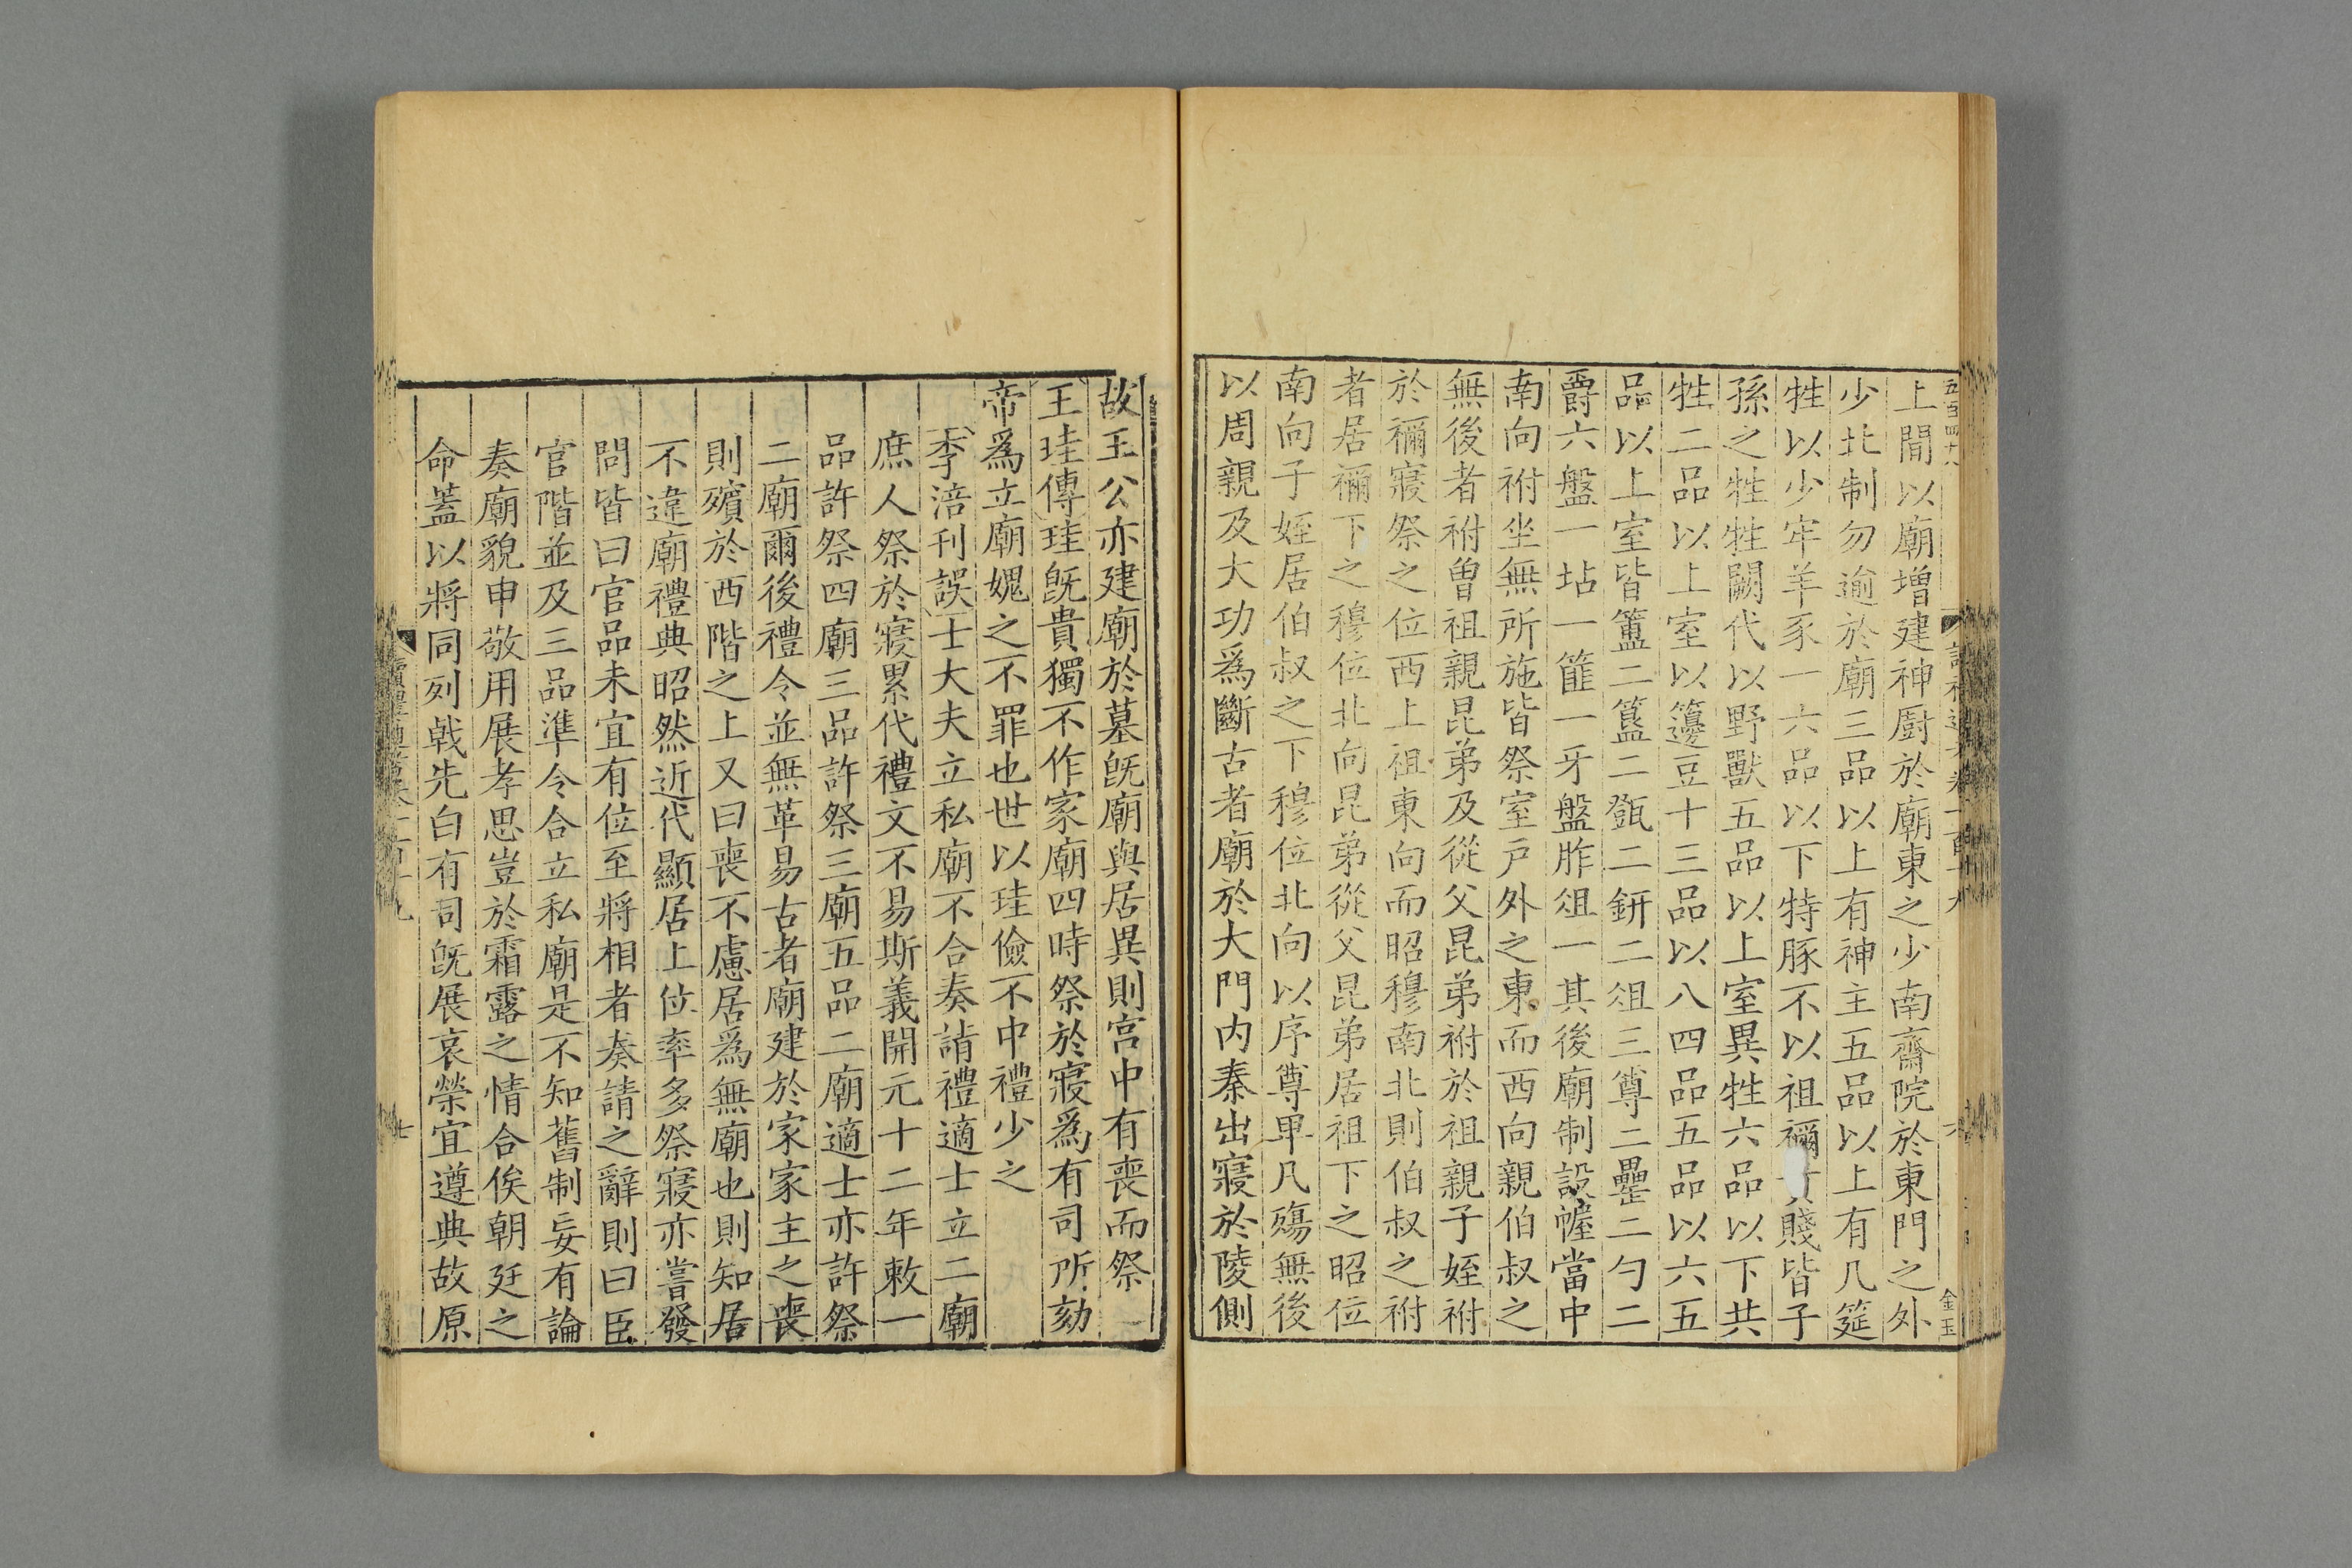 上間以廟增建神廚於廟東之少南齋院於東門之外
少北制勿逾於廟三品以上有神主五品以上有几筵
牲以少牢羊豕一六品以下特豚不以祖禰賤皆子
孫之牲牲闕代以野獸五品以上室異牲六品以下共
牲二品以上室以籩豆十三品以八四品五品以六五
品以上室皆簠二簋二㽅二鈃二俎三尊二罍二勺二
爵六盤一坫一篚一牙盤胙俎一其後廟制設幄當中
南向祔坐無所施皆祭室戶外之東而西向親伯叔之
無後者祔曾祖親昆弟及從父昆弟祔於祖親子姪祔
於禰寢祭之位西上祖東向而昭穆南北則伯叔之祔
者居禰下之穆位北向昆弟從父昆弟居祖下之昭位
南向子姪居伯叔之下穆位北向以序尊卑凡殤無後
以周親及大功爲斷古者廟於大門內秦出寢於陵側
故王公亦建廟於墓旣廟與居異則宮中有喪而祭
王珪傳珪旣貴獨不作家廟四時祭於寢爲有司所劾
帝爲立廟媿之不罪也世以珪儉不中禮少之
李涪刊誤士大夫立私廟不合奏請禮適士立二廟
庶人祭於寢累代禮文不易斯義開元十二年敕一
品許祭四廟三品許祭三廟五品二廟適士亦許祭
二廟爾後禮令並無革易古者廟建於家家主之喪
則殯於西階之上又曰喪不慮居爲無廟也則知居
不違廟禮典昭然近代顯居上位率多祭寢亦嘗發
問皆曰官品未宜有位至將相者奏請之辭則曰臣
官階並及三品準令合立私廟是不知舊制妄有論
奏廟貌申敬用展孝思豈於霜露之情合俟朝廷之
命蓋以將同列戟先白有司旣展哀榮宜遵典故原